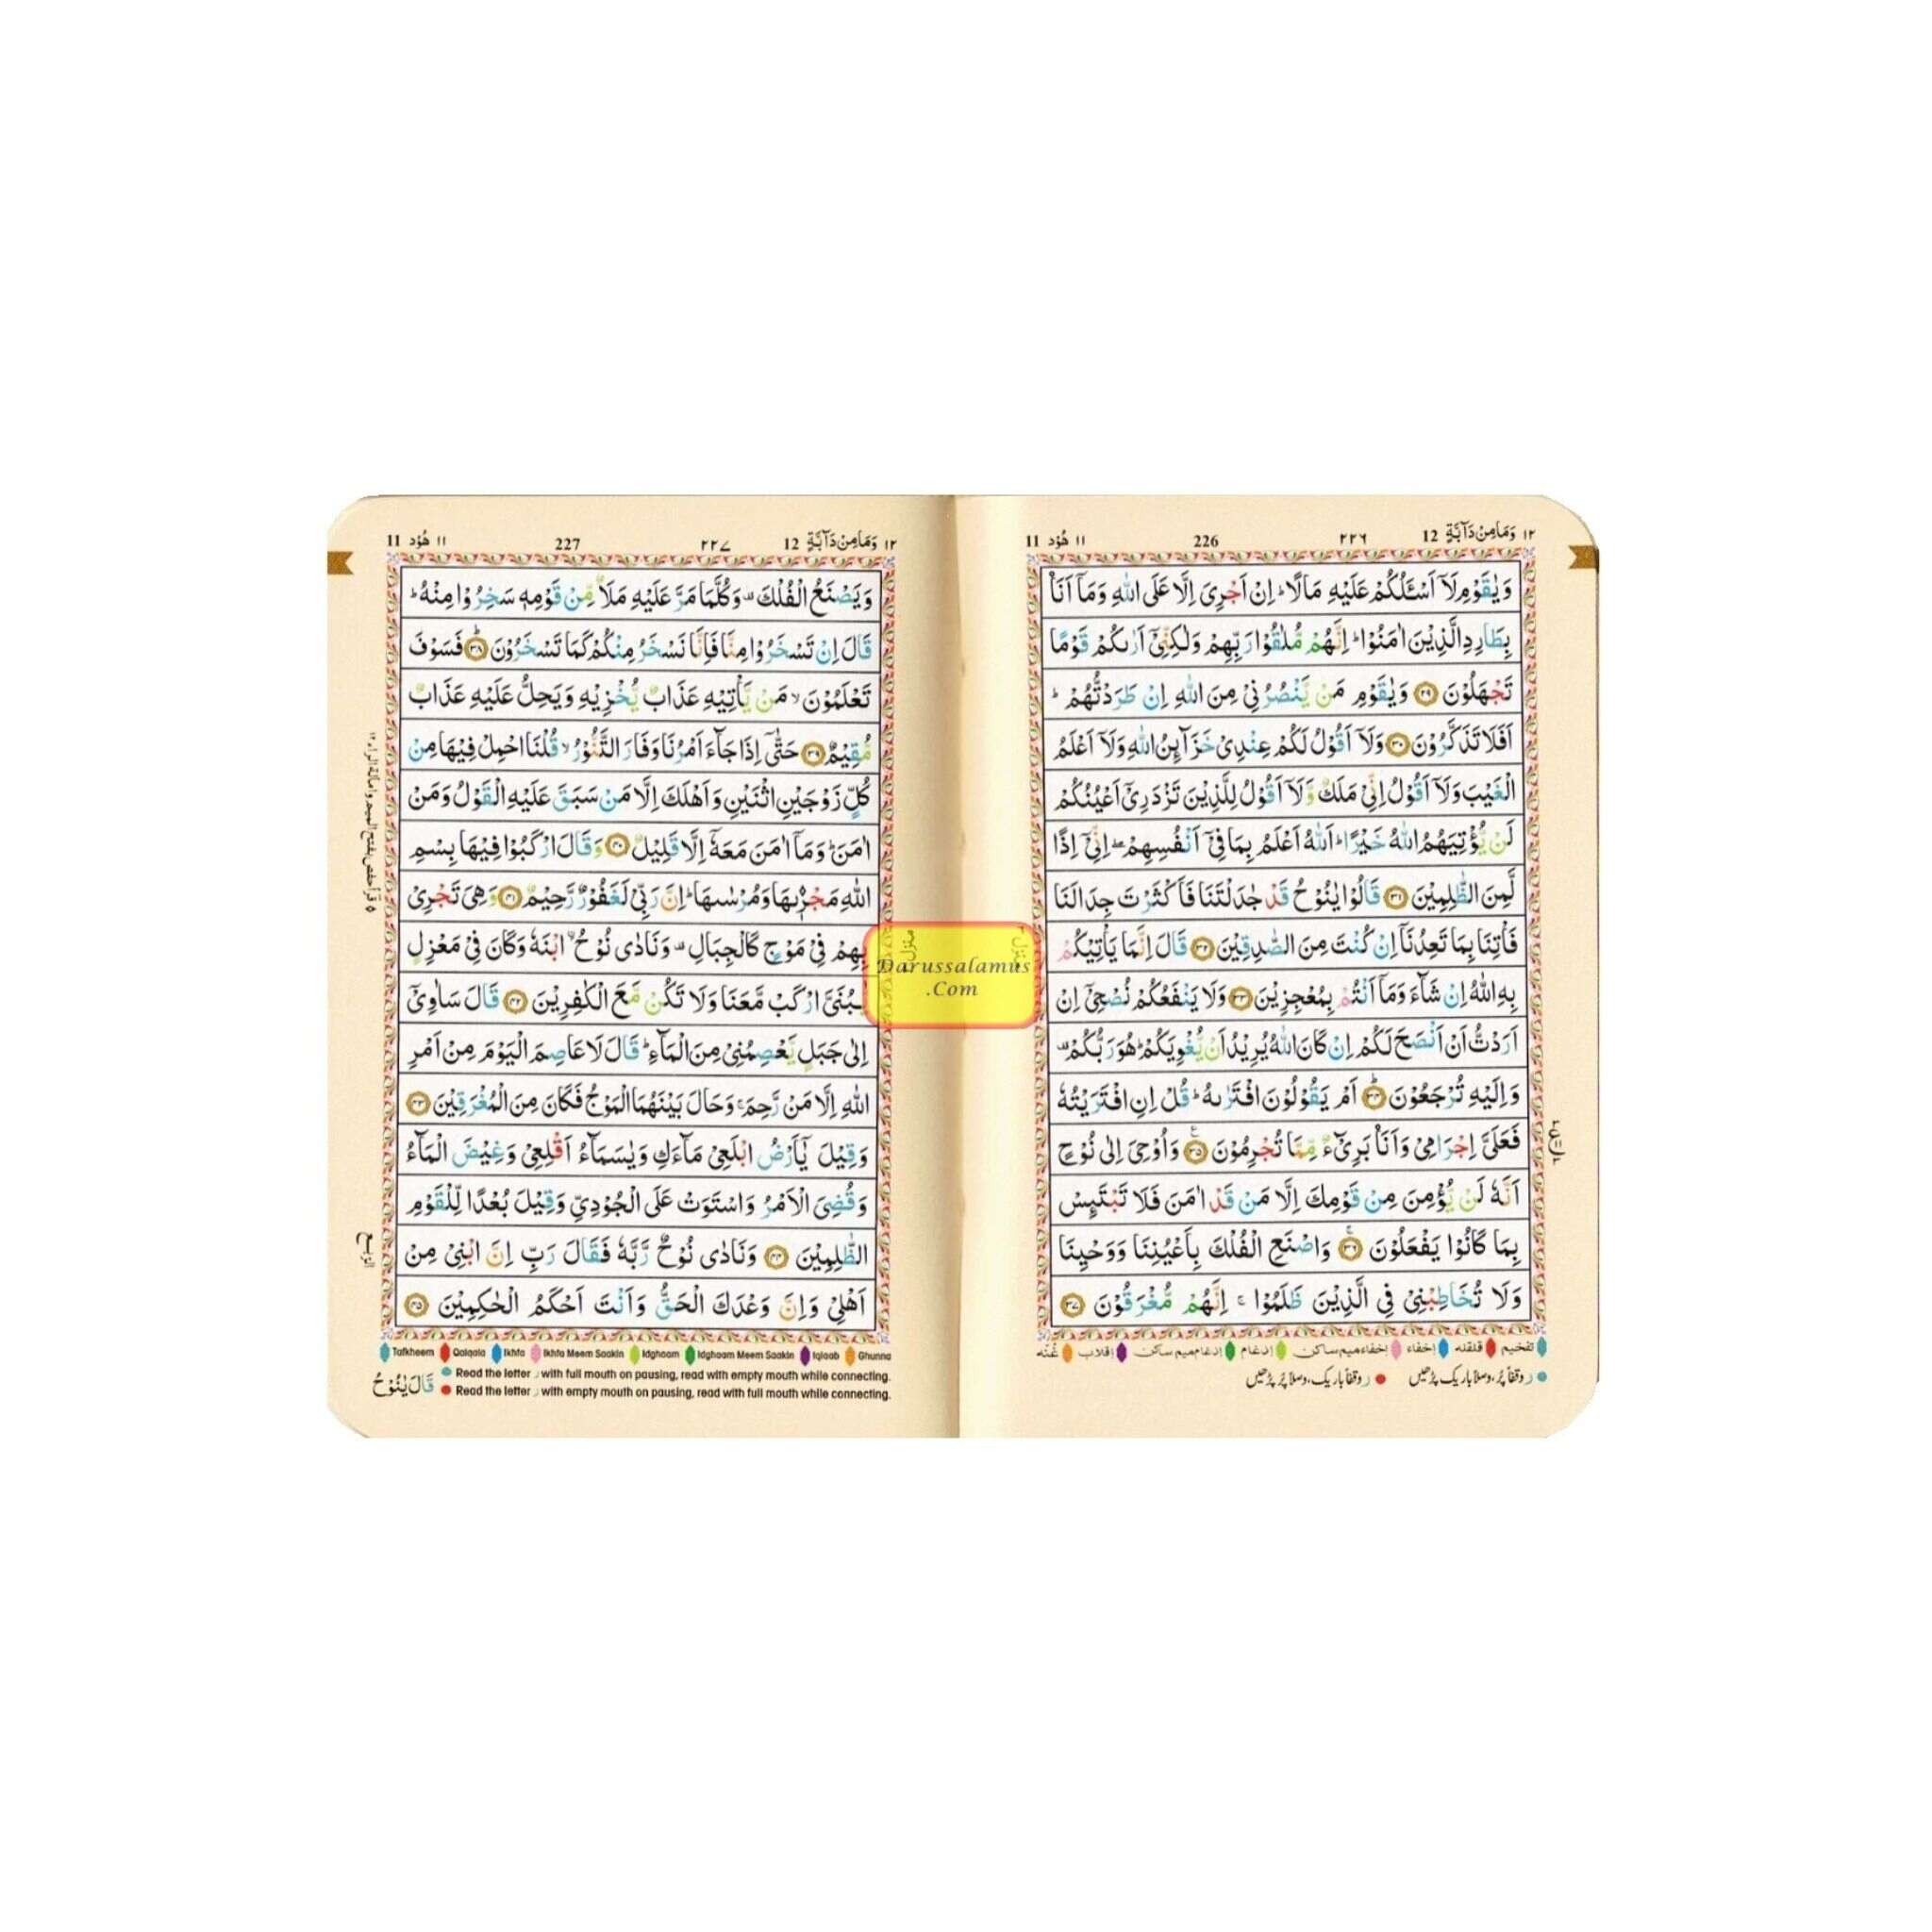 ١٢ وَمَا مِنْ دَآبَّةٍ 12 ٢٢٦ 226 ١١ هُوْد 11
وَيٰقَوْمِ لَآ اَسْـَٔلُكُمْ عَلَيْهِ مَالًا ؕ اِنْ اَجْرِىَ اِلَّا عَلَى اللّٰهِ وَمَآ اَنَا۟
بِطَارِدِ الَّذِيْنَ اٰمَنُوْا ؕ اِنَّهُمْ مُّلٰقُوْا رَبِّهِمْ وَلٰكِنِّىْٓ اَرٰىكُمْ قَوْمًا
تَجْهَلُوْنَ ﴿٢٩﴾ وَيٰقَوْمِ مَنْ يَّنْصُرُنِىْ مِنَ اللّٰهِ اِنْ طَرَدْتُّهُمْ ؕ
اَفَلَا تَذَكَّرُوْنَ ﴿٣٠﴾ وَلَآ اَقُوْلُ لَكُمْ عِنْدِىْ خَزَآىِٕنُ اللّٰهِ وَلَآ اَعْلَمُ
الْغَيْبَ وَلَآ اَقُوْلُ اِنِّىْ مَلَكٌ وَّلَآ اَقُوْلُ لِلَّذِيْنَ تَزْدَرِىْٓ اَعْيُنُكُمْ
لَنْ يُّؤْتِيَهُمُ اللّٰهُ خَيْرًا ؕ اَللّٰهُ اَعْلَمُ بِمَا فِىْٓ اَنْفُسِهِمْ ۖ اِنِّىْٓ اِذًا
لَّمِنَ الظّٰلِمِيْنَ ﴿٣١﴾ قَالُوْا يٰنُوْحُ قَدْ جٰدَلْتَنَا فَاَكْثَرْتَ جِدَالَنَا
فَاْتِنَا بِمَا تَعِدُنَآ اِنْ كُنْتَ مِنَ الصّٰدِقِيْنَ ﴿٣٢﴾ قَالَ اِنَّمَا يَاْتِيْكُمْ
بِهِ اللّٰهُ اِنْ شَآءَ وَمَآ اَنْتُمْ بِمُعْجِزِيْنَ ﴿٣٣﴾ وَلَا يَنْفَعُكُمْ نُصْحِىْٓ اِنْ
اَرَدْتُّ اَنْ اَنْصَحَ لَكُمْ اِنْ كَانَ اللّٰهُ يُرِيْدُ اَنْ يُّغْوِيَكُمْ ؕ هُوَ رَبُّكُمْ ۟
وَاِلَيْهِ تُرْجَعُوْنَ ﴿٣٤﴾ اَمْ يَقُوْلُوْنَ افْتَرٰىهُ ؕ قُلْ اِنِ افْتَرَيْتُهٗ
فَعَلَىَّ اِجْرَامِىْ وَاَنَا۟ بَرِىْٓءٌ مِّمَّا تُجْرِمُوْنَ ﴿٣٥﴾ وَاُوْحِىَ اِلٰى نُوْحٍ
اَنَّهٗ لَنْ يُّؤْمِنَ مِنْ قَوْمِكَ اِلَّا مَنْ قَدْ اٰمَنَ فَلَا تَبْتَىِٕسْ
بِمَا كَانُوْا يَفْعَلُوْنَ ﴿٣٦﴾ وَاصْنَعِ الْفُلْكَ بِاَعْيُنِنَا وَوَحْيِنَا
وَلَا تُخَاطِبْنِىْ فِى الَّذِيْنَ ظَلَمُوْا ۚ اِنَّهُمْ مُّغْرَقُوْنَ ﴿٣٧﴾
تفخيم قلقله إخفاء إخفاءميم ساكن إدغام إدغام ميم ساكن إقلاب غُنّه
ر وقفاً پُر، وصلاً باریک پڑھیں ر وقفاً باریک، وصلاً پُر پڑھیں
١٢ وَمَا مِنْ دَآبَّةٍ 12 ٢٢٧ 227 ١١ هُوْد 11
وَيَصْنَعُ الْفُلْكَ ۟ وَكُلَّمَا مَرَّ عَلَيْهِ مَلَاٌ مِّنْ قَوْمِهٖ سَخِرُوْا مِنْهُ ؕ
قَالَ اِنْ تَسْخَرُوْا مِنَّا فَاِنَّا نَسْخَرُ مِنْكُمْ كَمَا تَسْخَرُوْنَ ﴿٣٨﴾ فَسَوْفَ
تَعْلَمُوْنَ ۙ مَنْ يَّاْتِيْهِ عَذَابٌ يُّخْزِيْهِ وَيَحِلُّ عَلَيْهِ عَذَابٌ
مُّقِيْمٌ ﴿٣٩﴾ حَتّٰىٓ اِذَا جَآءَ اَمْرُنَا وَفَارَ التَّنُّوْرُ ۙ قُلْنَا احْمِلْ فِيْهَا مِنْ
كُلٍّ زَوْجَيْنِ اثْنَيْنِ وَاَهْلَكَ اِلَّا مَنْ سَبَقَ عَلَيْهِ الْقَوْلُ وَمَنْ
اٰمَنَ ؕ وَمَآ اٰمَنَ مَعَهٗٓ اِلَّا قَلِيْلٌ ﴿٤٠﴾ وَقَالَ ارْكَبُوْا فِيْهَا بِسْمِ
اللّٰهِ مَجْرٖىهَا وَمُرْسٰىهَا ؕ اِنَّ رَبِّىْ لَغَفُوْرٌ رَّحِيْمٌ ﴿٤١﴾ وَهِىَ تَجْرِىْ
بِهِمْ فِىْ مَوْجٍ كَالْجِبَالِ ۟ وَنَادٰى نُوْحُ ۨ ابْنَهٗ وَكَانَ فِىْ مَعْزِلٍ
يّٰبُنَىَّ ارْكَبْ مَّعَنَا وَلَا تَكُنْ مَّعَ الْكٰفِرِيْنَ ﴿٤٢﴾ قَالَ سَاٰوِىْٓ
اِلٰى جَبَلٍ يَّعْصِمُنِىْ مِنَ الْمَآءِ ؕ قَالَ لَا عَاصِمَ الْيَوْمَ مِنْ اَمْرِ
اللّٰهِ اِلَّا مَنْ رَّحِمَ ۚ وَحَالَ بَيْنَهُمَا الْمَوْجُ فَكَانَ مِنَ الْمُغْرَقِيْنَ ﴿٤٣﴾
وَقِيْلَ يٰٓاَرْضُ ابْلَعِىْ مَآءَكِ وَيٰسَمَآءُ اَقْلِعِىْ وَغِيْضَ الْمَآءُ
وَقُضِىَ الْاَمْرُ وَاسْتَوَتْ عَلَى الْجُوْدِىِّ وَقِيْلَ بُعْدًا لِّلْقَوْمِ
الظّٰلِمِيْنَ ﴿٤٤﴾ وَنَادٰى نُوْحٌ رَّبَّهٗ فَقَالَ رَبِّ اِنَّ ابْنِىْ مِنْ
اَهْلِىْ وَاِنَّ وَعْدَكَ الْحَقُّ وَاَنْتَ اَحْكَمُ الْحٰكِمِيْنَ ﴿٤٥﴾
Tafkheem Qalqala Ikhfa Ikhfa Meem Saakin Idghaam Idghaam Meem Saakin Iqlaab Ghunna
Read the letter ر with full mouth on pausing, read with empty mouth while connecting.
Read the letter ر with empty mouth on pausing, read with full mouth while connecting.
قَالَ يٰنُوْحُ
الربع
منزل
Darussalamus
.Com